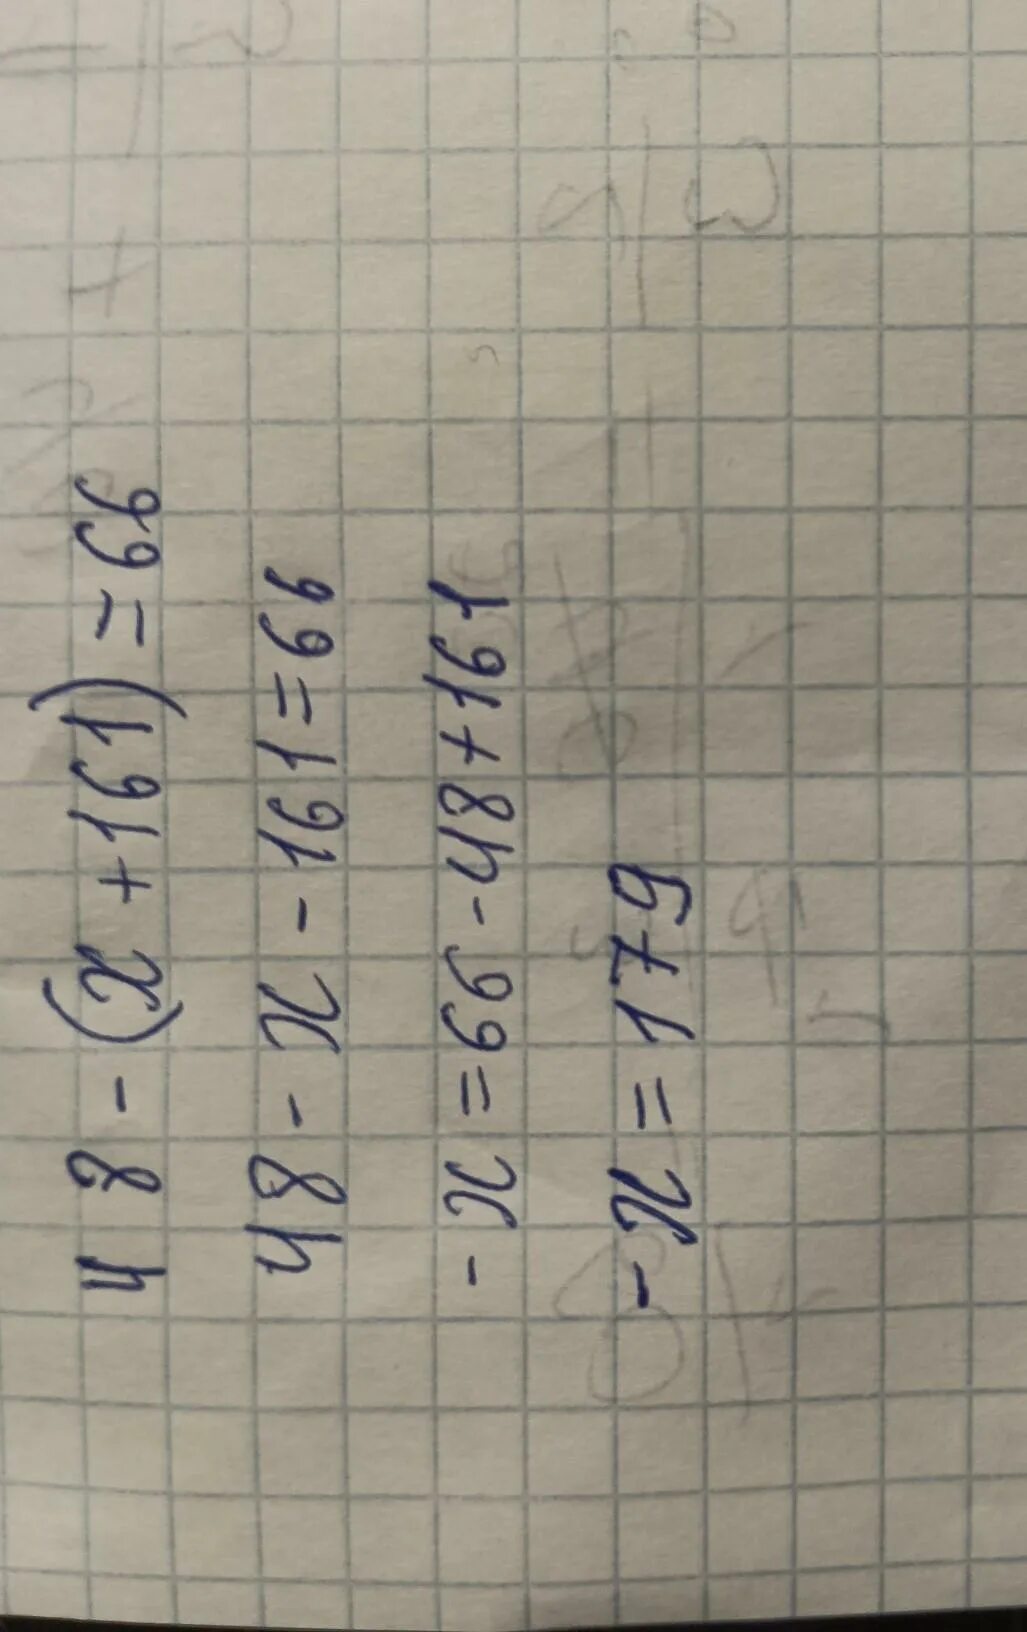 48 - (x + 161) = 66
48 - x - 161 = 66
- x = 66 - 48 + 161
- x = 179